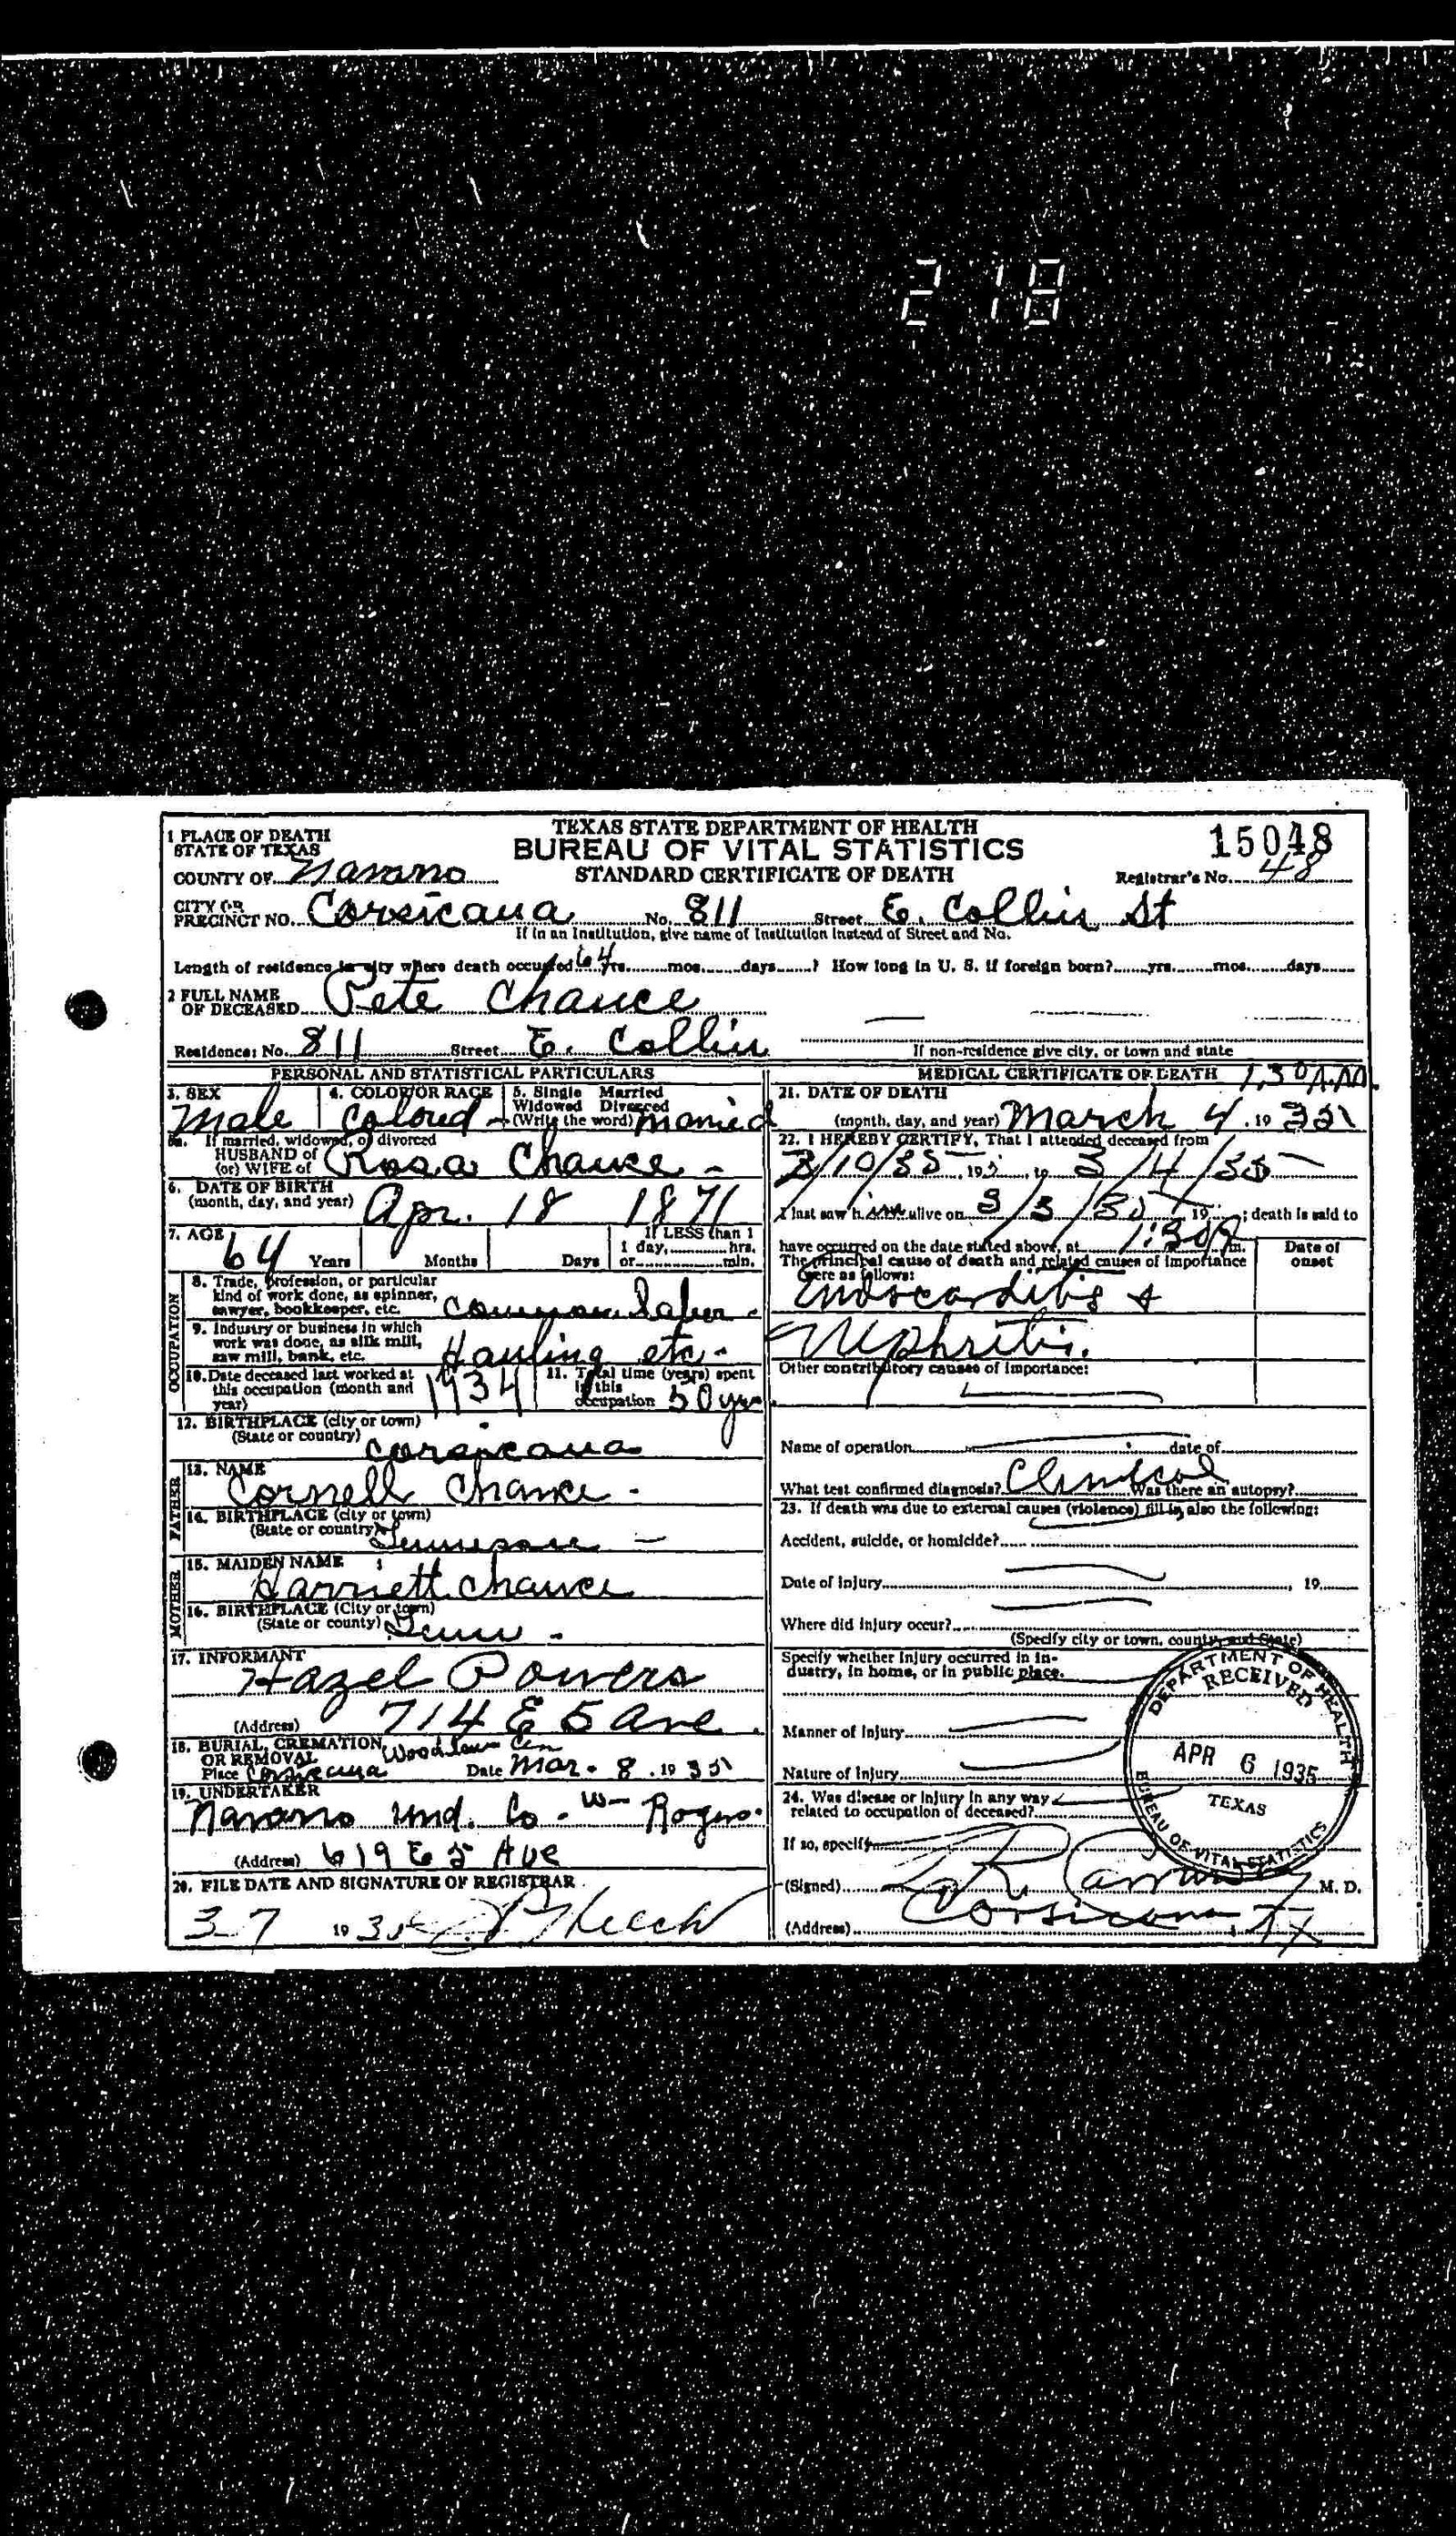 218
1 PLACE OF DEATH
STATE OF TEXAS
TEXAS STATE DEPARTMENT OF HEALTH
BUREAU OF VITAL STATISTICS
STANDARD CERTIFICATE OF DEATH
15048
COUNTY OF Navarro
Registrar's No. 48
CITY OR PRECINCT NO. Corsicana No. 811 Street E. Collin St
If in an Institution, give name of Institution instead of Street and No.
Length of residence in city where death occurred 64 yrs. mos. days ? How long in U. S. if foreign born? yrs. mos. days
2 FULL NAME OF DECEASED Pete Chance
Residence: No. 811 Street E. Collin
If non-residence give city, or town and state
PERSONAL AND STATISTICAL PARTICULARS
3. SEX Male
4. COLOR OR RACE Colored
5. Single Married Widowed Divorced (Write the word) married
5a. If married, widowed, or divorced HUSBAND of (or) WIFE of Rosa Chance
6. DATE OF BIRTH (month, day, and year) Apr. 18 1871
7. AGE 64 Years Months Days If LESS than 1 1 day, hrs. or min.
OCCUPATION
8. Trade, profession, or particular kind of work done, as spinner, sawyer, bookkeeper, etc. common labor
9. Industry or business in which work was done, as silk mill, saw mill, bank, etc. Hauling etc.
10. Date deceased last worked at this occupation (month and year) 1934
11. Total time (years) spent in this occupation 50 yrs
12. BIRTHPLACE (city or town) (State or country) Corsicana
FATHER
13. NAME Cornell Chance
14. BIRTHPLACE (city or town) (State or country) Tennessee
MOTHER
15. MAIDEN NAME Harriett Chance
16. BIRTHPLACE (City or town) (State or county) Tenn
17. INFORMANT Hazel Powers
(Address) 714 E 5 Ave
18. BURIAL, CREMATION OR REMOVAL Woodlawn Cem
Place Corsicana Date Mar. 8. 1935
19. UNDERTAKER
Navarro Und. Co. - Wm Rogers.
(Address) 619 E 5 Ave
20. FILE DATE AND SIGNATURE OF REGISTRAR
3-7 1935
MEDICAL CERTIFICATE OF DEATH 1:30 A.M.
21. DATE OF DEATH
(month, day, and year) March 4. 1935
22. I HEREBY CERTIFY, That I attended deceased from
/10/35 , 193 , to 3/4/35
I last saw h im alive on 3/3/35 19 ; death is said to
have occurred on the date stated above, at 1:30 A m.
The principal cause of death and related causes of importance were as follows:
Date of onset
Endocarditis &
Nephritis.
Other contributory causes of importance:
Name of operation date of
What test confirmed diagnosis? Clinical Was there an autopsy?
23. If death was due to external causes (violence) fill in also the following:
Accident, suicide, or homicide?
Date of injury , 19
Where did injury occur?
(Specify city or town, county, and State)
Specify whether injury occurred in industry, in home, or in public place.
Manner of injury
Nature of injury
24. Was disease or injury in any way related to occupation of deceased?
If so, specify
(Signed) M. D.
(Address) Corsicana, Tx
DEPARTMENT OF HEALTH
RECEIVED
APR 6 1935
TEXAS
BUREAU OF VITAL STATISTICS